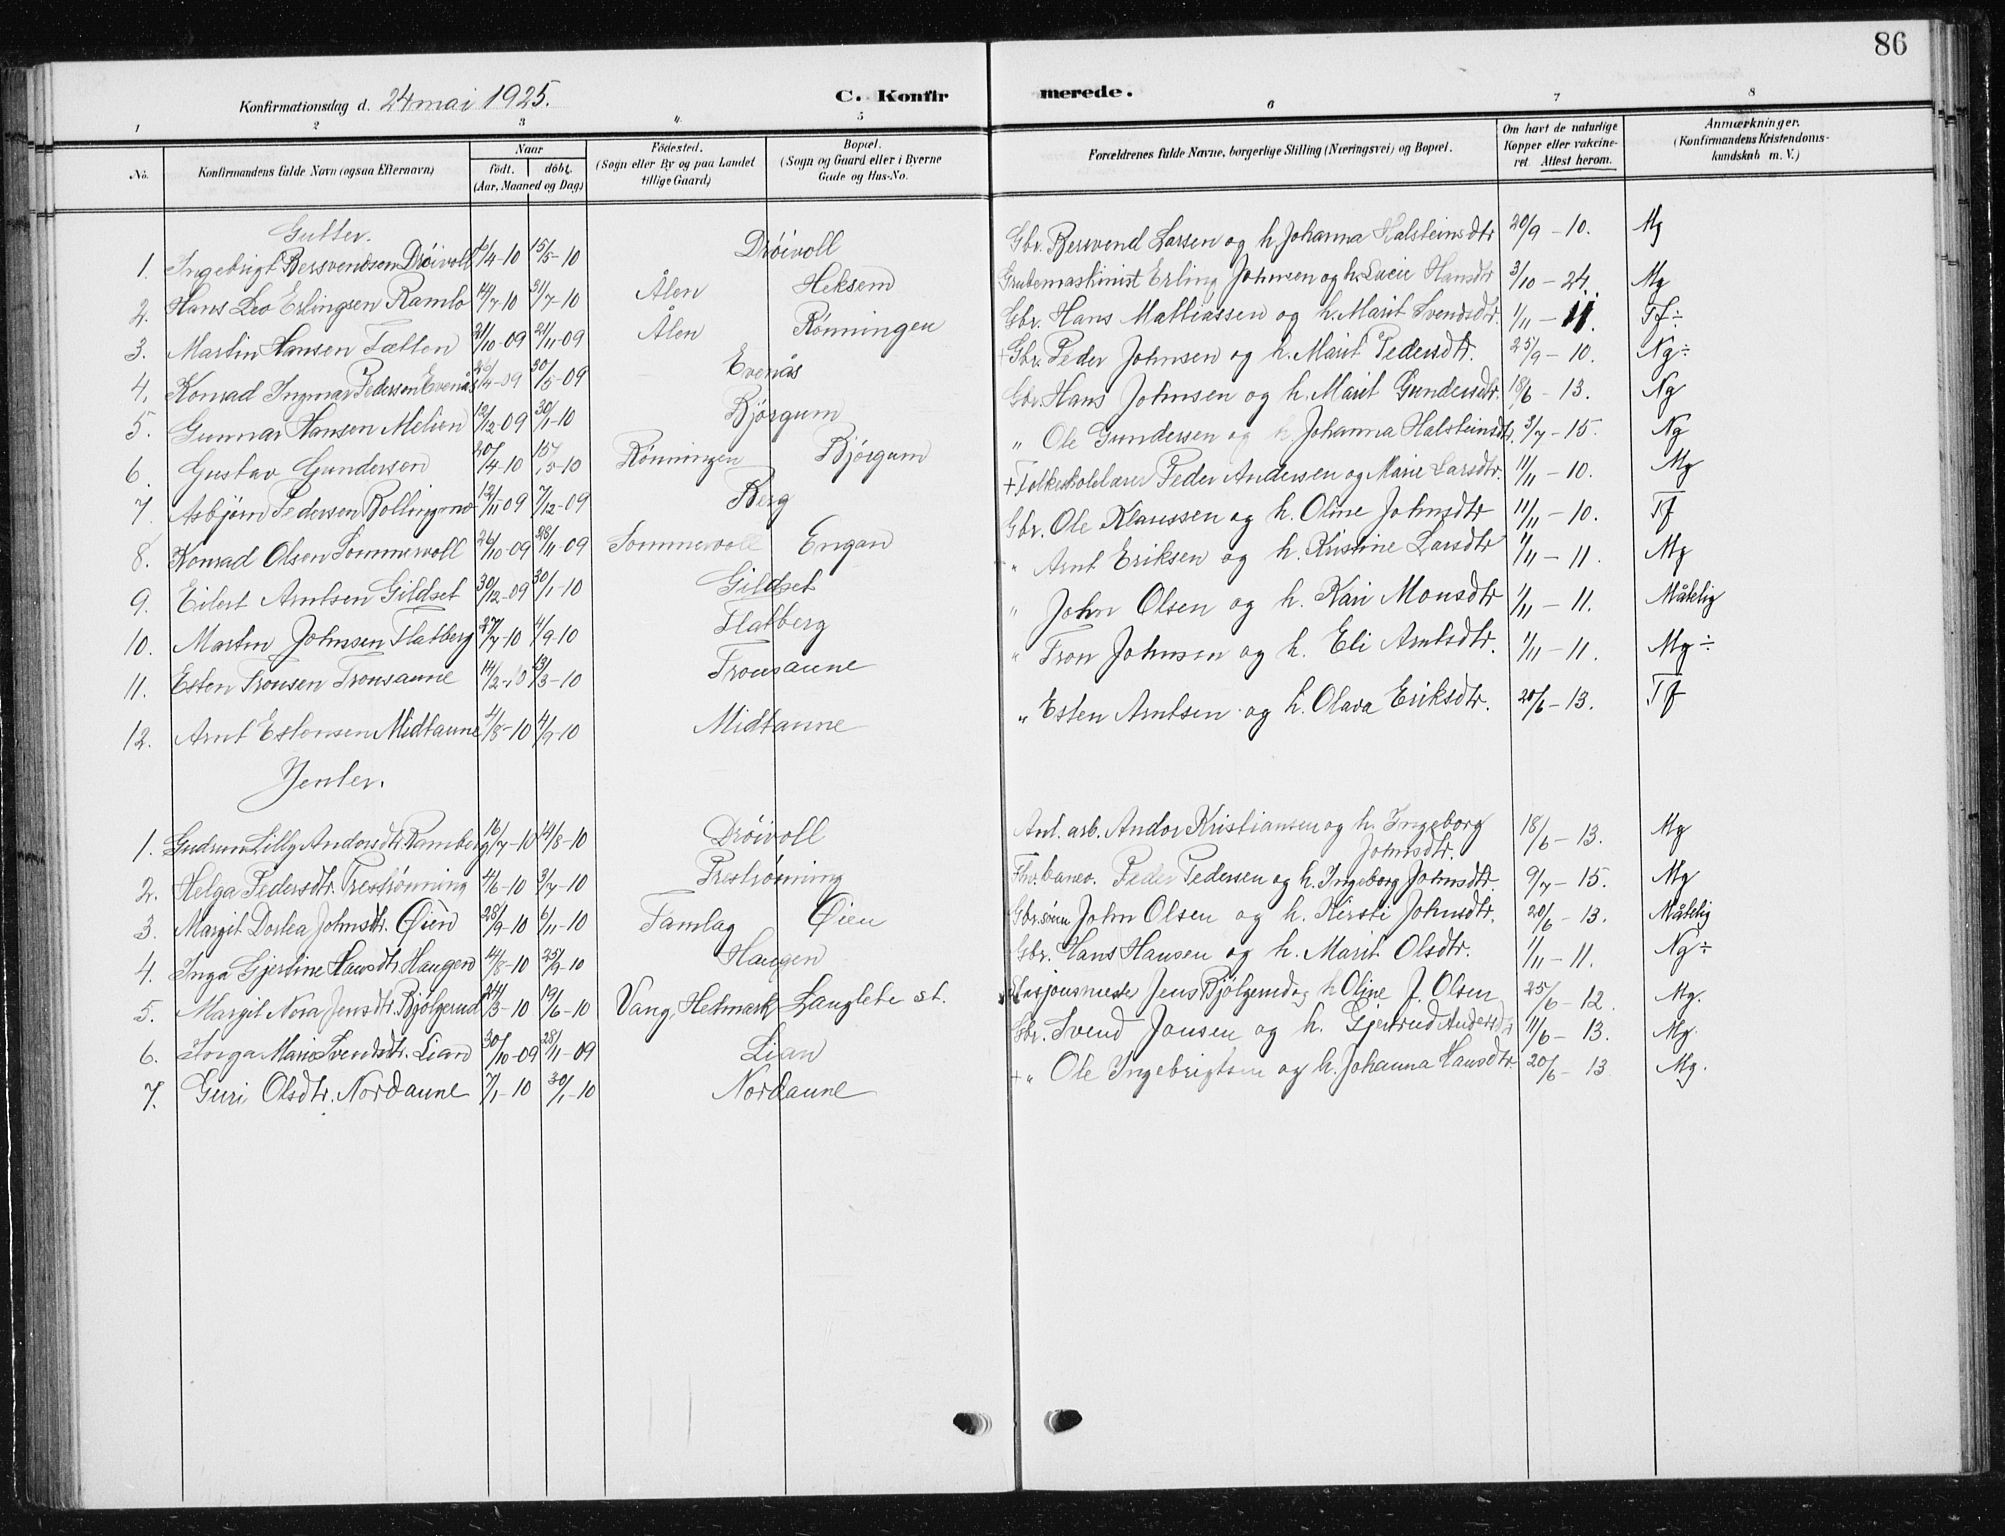 86
Konfirmationsdag d. 24 mai 1925.
C. Konfirmerede.
1 2 3 4. 5 6 7 8
No. Konfirmandens fulde Navn (ogsaa Efternavn) Naar født. døbt. (Aar, Maaned og Dag) Fødested. (Sogn eller By og paa Landet tillige Gaard) Bopæl. (Sogn og Gaard eller i Byerne Gade og Hus-No. Forældrenes fulde Navne, borgerlige Stilling (Næringsvei) og Bopæl. Om havt de naturlige Kopper eller vakcineret. Attest herom. Anmærkninger. (Konfirmandens Kristendomskundskab m. V.)
Gutter.
1. Ingebrigt Bersvendsen Drøivoll /4-10 15/5-10 Drøivoll Gbr. Bersvend Larsen og h. Johanna Halsteinsdtr 20/9-10. Mg
2. Hans Leo Erlingsen Ramlo 14/7-10 31/7-10 Ålen Heksem Grubemaskinist Erling Johnsen og h. Lucie Hansdtr 3/10-24. Mg
3. Martin Hansen Tætten /10-09 21/11-09 Ålen Rønningen Gbr. Hans Mathiassen og h. Marit Svendsdtr. 1/11-11. Tf÷
4. Konrad Ingmar Pedersen Evenås /4-09 30/5-09 Evenås + Gbr. Peder Johnsen og h. Marit Pedersdtr. 25/9-10. Ng÷
5. Gunnar Hansen Melien 12/12-09 30/1-10 Bjørgum Gbr. Hans Johnsen og h. Marit Gundersdtr. 18/6-13. Ng
6. Gustav Gundersen 20/4-10 15/5-10 Rønningen Bjørgum " Ole Gundersen og h. Johanna Halsteinsdtr. 3/7-15. Ng
7. Asbjørn Pedersen Bollingmo 12/11-09 7/12-09 Berg + Folkeskolelærer Peder Andersen og Marie Larsdtr. 11/11-10. Mg
8. Konrad Olsen Sommervoll 26/10-09 28/11-09 Sommervoll Engan Gbr. Ole Klaussen og h. Oline Johnsdtr 11/11-10. Tf
9. Eilert Arntsen Gildset 30/12-09 30/1-10 Gildset " Arnt Eriksen og h. Kristine Larsdtr 1/11-11. Mg
10. Martin Johnsen Flatberg 27/7-10 4/9-10 Flatberg " John Olsen og h. Kari Monsdtr 1/11-11. Måtelig
11. Esten Tronsen Tronsaune 14/2-10 13/3-10 Tronsaune " Tron Johnsen og h. Eli Arntsdtr. 1/11-11. Mg÷
12. Arnt Estensen Midtaune 4/8-10 4/9-10 Midtaune " Esten Arntsen og h. Olava Eriksdtr. 20/6-13. Tf
Jenter.
1. Gudrun Lilly Andorsdtr. Ramberg 16/7-10 14/8-10 Drøivoll Anl. arb. Andor Kristiansen og h. Ingeborg Johnsdtr. 18/6-13. Mg
2. Helga Pedersdtr. Prestrønning 4/6-10 3/7-10 Prestrønning Peder Pedersen og h. Ingeborg Johnsdtr. 9/7-15. Mg
3. Margit Dortea Johnsdtr. Øien 28/9-10 6/11-10 Tamlag Øien Gbr.sønn John Olsen og h. Kirsti Johnsdtr. 20/6-13. Måtelig
4. Inga Gjertine Hansdtr. Haugen 14/8-10 25/9-10 Haugen Gbr. Hans Hansen og h. Marit Olsdtr. 1/11-11. Ng÷
5. Margit Nora Jensdtr. Bjølgerud 24/3-10 19/6-10 Vang, Hedmark Langlete st. Stasjonsmester Jens Bjølgerud og h Oline J. Olsen 25/6-12. Mg.
6. Inga Marie Svendsdtr. Lian 30/10-09 28/11-09 Lian Gbr. Svend Jonsen og h. Gjertrud Andersdtr 11/6-13. Mg.
7. Guri Olsdtr. Nordaune 7/1-10 30/1-10 Nordaune + " Ole Ingebrigtsen og h. Johanna Hansdtr. 20/6-13 Mg.